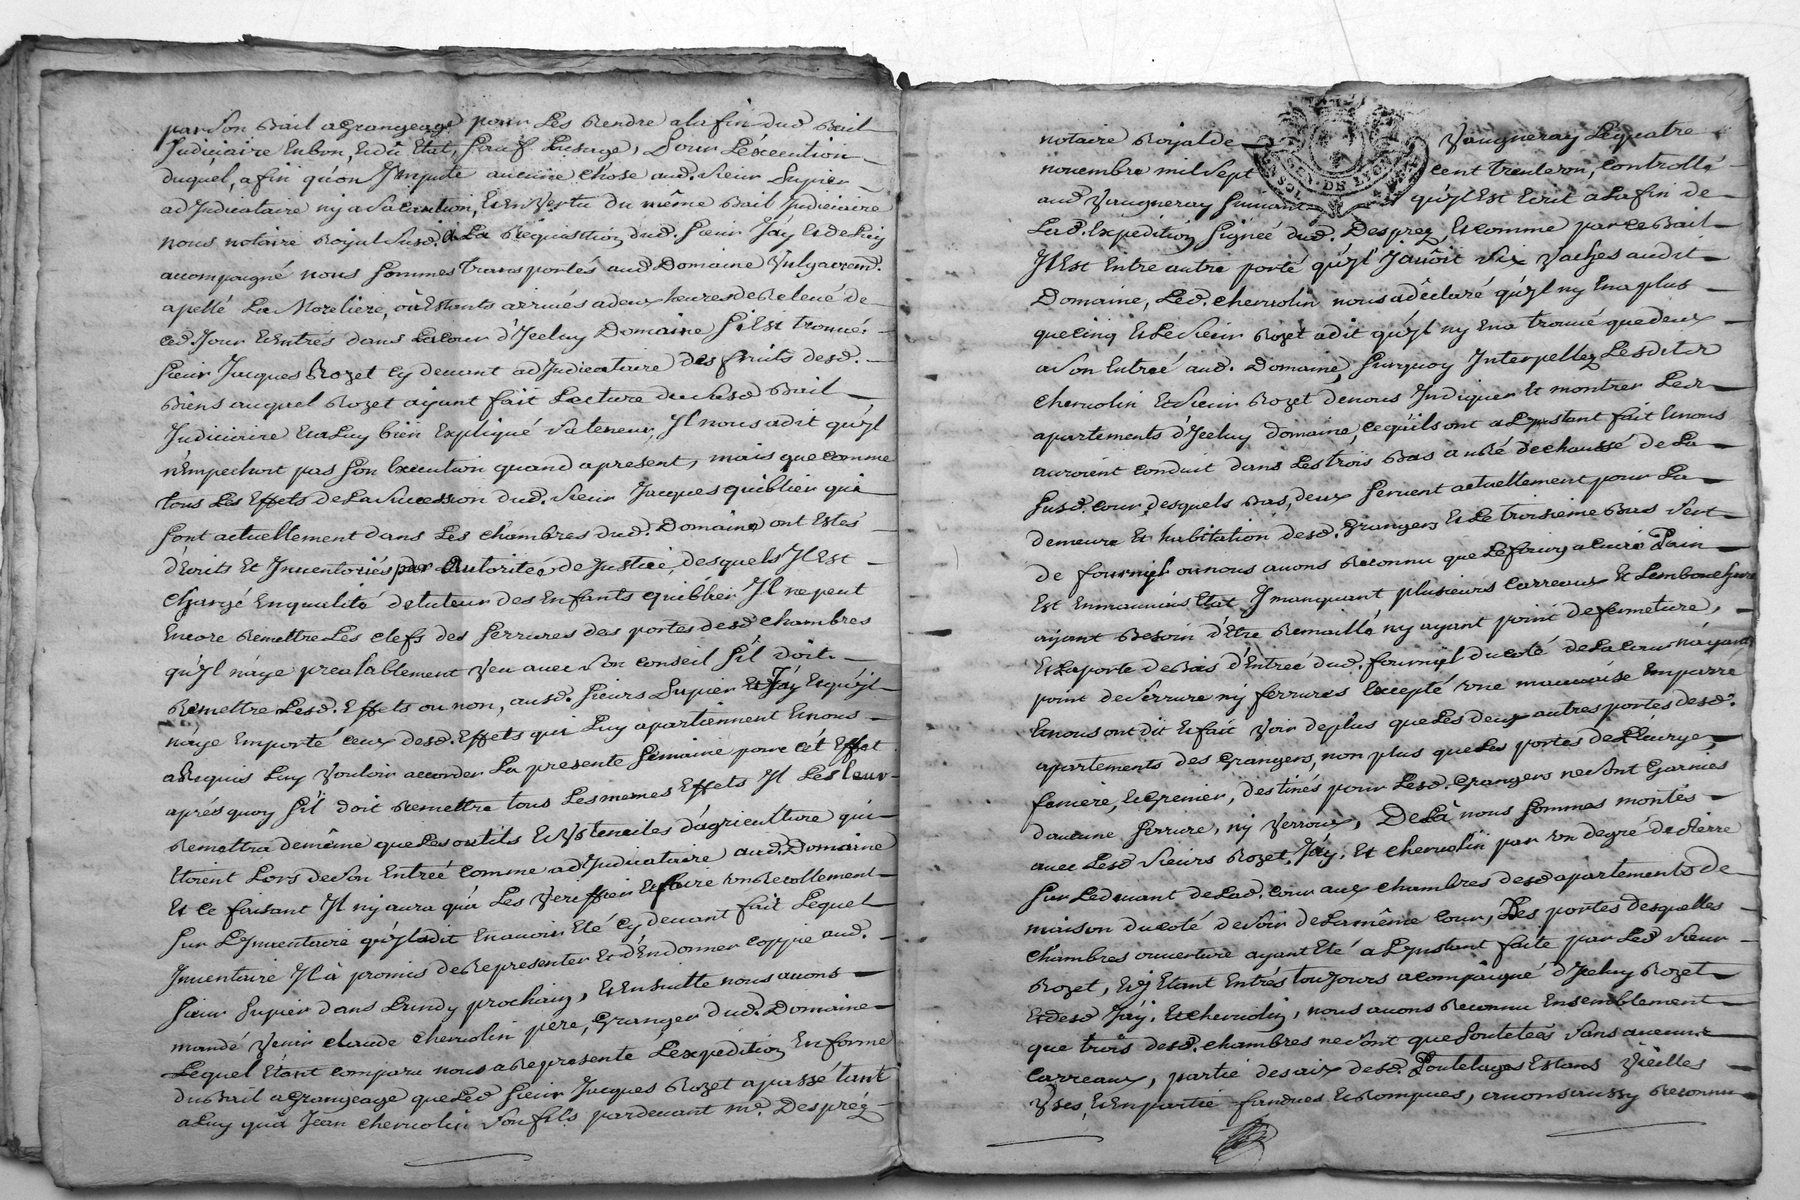 par son Bail a Grangeage pour Les Rendre a la fin dud Bail
Judiciaire En bon, Et dû Etat, sauf Lusage, Pour L'éxecution
duquel, afin qu'on N'Impute aucune chose aud. sieur Supier
adJudicataire ny a sa Caution, Et En Vertu du même Bail Judiciaire
nous notaire Royal susd, a La Requisition dud. sieur Jay Et de Luy
accompagné nous sommes transportés aud Domaine Vulgairemt.
apellé La Morliere, où Estants arrivés a deux heures de Relevé de
ced. Jour Et Entrés dans La Cour d'Jceluy Domaine s'Est trouvé
sieur Jacques Rozet cy devant adJudicataire des fruits desd.
Biens auquel Rozet ayant fait Lecture du susd Bail
Judiciaire Et a Luy bien Expliqué sa teneur, Jl nous a dit qu'Jl
n'Empechoit pas son Execution quand apresent, mais que comme
tous Les Effets de La Succession dud. sieur Jacques quiblier qui
sont actuellement dans Les chambres dud. Domaine ont Estés
d'Ecrits Et Inventoriés par Autoritée de Justice, desquels Jl Est
chargé En qualité de tuteur des Enfants quiblier Jl ne peut
Encore Remettre Les clefs des serrures des portes desd chambres
qu'Jl n'aye prealablement Veu avec son conseil s'Jl doit
Remettre Lesd. Effets ou non, ausd. sieurs Supier Et Jay Et qu'Jl
n'aye Emporté ceux desd. Effets qui Luy apartiennent Et nous
a Requis Luy Vouloir accorder La presente semaine pour cét Effet
aprés quoy s'Jl doit Remettre tous Les memes Effets Jl Les leur
Remettra de même que Les outils Et Ustenciles d'agriculture qui
Etoient Lors de son Entrée comme adJudicataire aud. Domaine
Et ce faisant Jl n'y aura qu'a Les Veriffier Et faire un Recollement
sur L'Jnventaire qu'Jl a dit En avoir Eté cy devant fait Lequel
Jnventaire Jl à promis de Representer Et d'En donner coppie aud.
sieur Supier dans Lundy prochain, Et Ensuitte nous avons
mandé Venir claude chervolin père, Granger dud. Domaine
Lequel Etant comparu nous a Representé L'expedition En forme
du Bail a Grangeage que Led sieur Jacques Rozet a passé tant
a Luy qu'a Jean chervolin son fils pardevant me. Despréz
notaire Royal de Vaugneray Le quatre
novembre mil sept cent trente un, Controllé
aud Vaugneray suivant qu'Jl Est Ecrit a La fin de
Lad. Expedition signée dud. Desprez Et comme par ce Bail
Jl Est Entre autre porté qu'Jl J avoit six Vaches audit
Domaine, Led. chervolin nous a déclaré qu'Jl n'y En a plus
que cinq Et Le sieur Rozet a dit qu'Jl n'y En a trouvé que deux
a son Entreé aud. Domaine, surquoy Jnterpellez Lesdits
chervolin Et sieur Rozet de nous Jndiquer Et montrer Les
apartements d'Jceluy domaine, ce qu'ils ont a L'Jnstant fait Et nous
auroient conduit dans Les trois Bas à Ré de chaussé de La
susd. cour, desquels Bas, deux servent actuellement pour La
demeure Et habitation desd. Grangers Et Le troisieme Bas sert
de fournil ou nous avons Reconnu que Le four a cuire Pain
Est En mauvais Etat J manquant plusieurs Carreaux Et L'embouchure
ayant Besoin d'être Remaillé n'y ayant point de fermeture,
Et La porte de Bois d'Entreé dud. fournil du coté de La Cour n'ayant
point de serrure ny ferrures Excepté une mauvaise Emparre
Et nous ont dit Et fait Voir de plus que Les deux autres portes desd.
apartements des Grangers, non plus que Les portes de L'Ecurye,
feniere, Et Grenier, destinés pour Lesd. Grangers ne sont Garnies
d'aucune serrure, ny Verroux, De Là nous sommes montés
avec Lesd sieurs Rozet, Jay, Et chervolin par un degré de Pierre
sur Le devant de Lad. cour aux chambres desd apartements de
maison du coté de soir de La même cour, Des portes desquelles
chambres ouverture ayant Eté a L'Jnstant faite par Led sieur
Rozet, Et y Etant Entrés toujours acompagné d'Jceluy Rozet
Et desd Jay, Et chervolin, nous avons Reconnu Ensemblement
que trois desd. chambres ne sont que Poutelées sans aucuns
Carreaux, partie des aix desd Poutelages Estans Vieilles
Uses, Et En partie fandues Et Rompues, avons aussy Reconnu